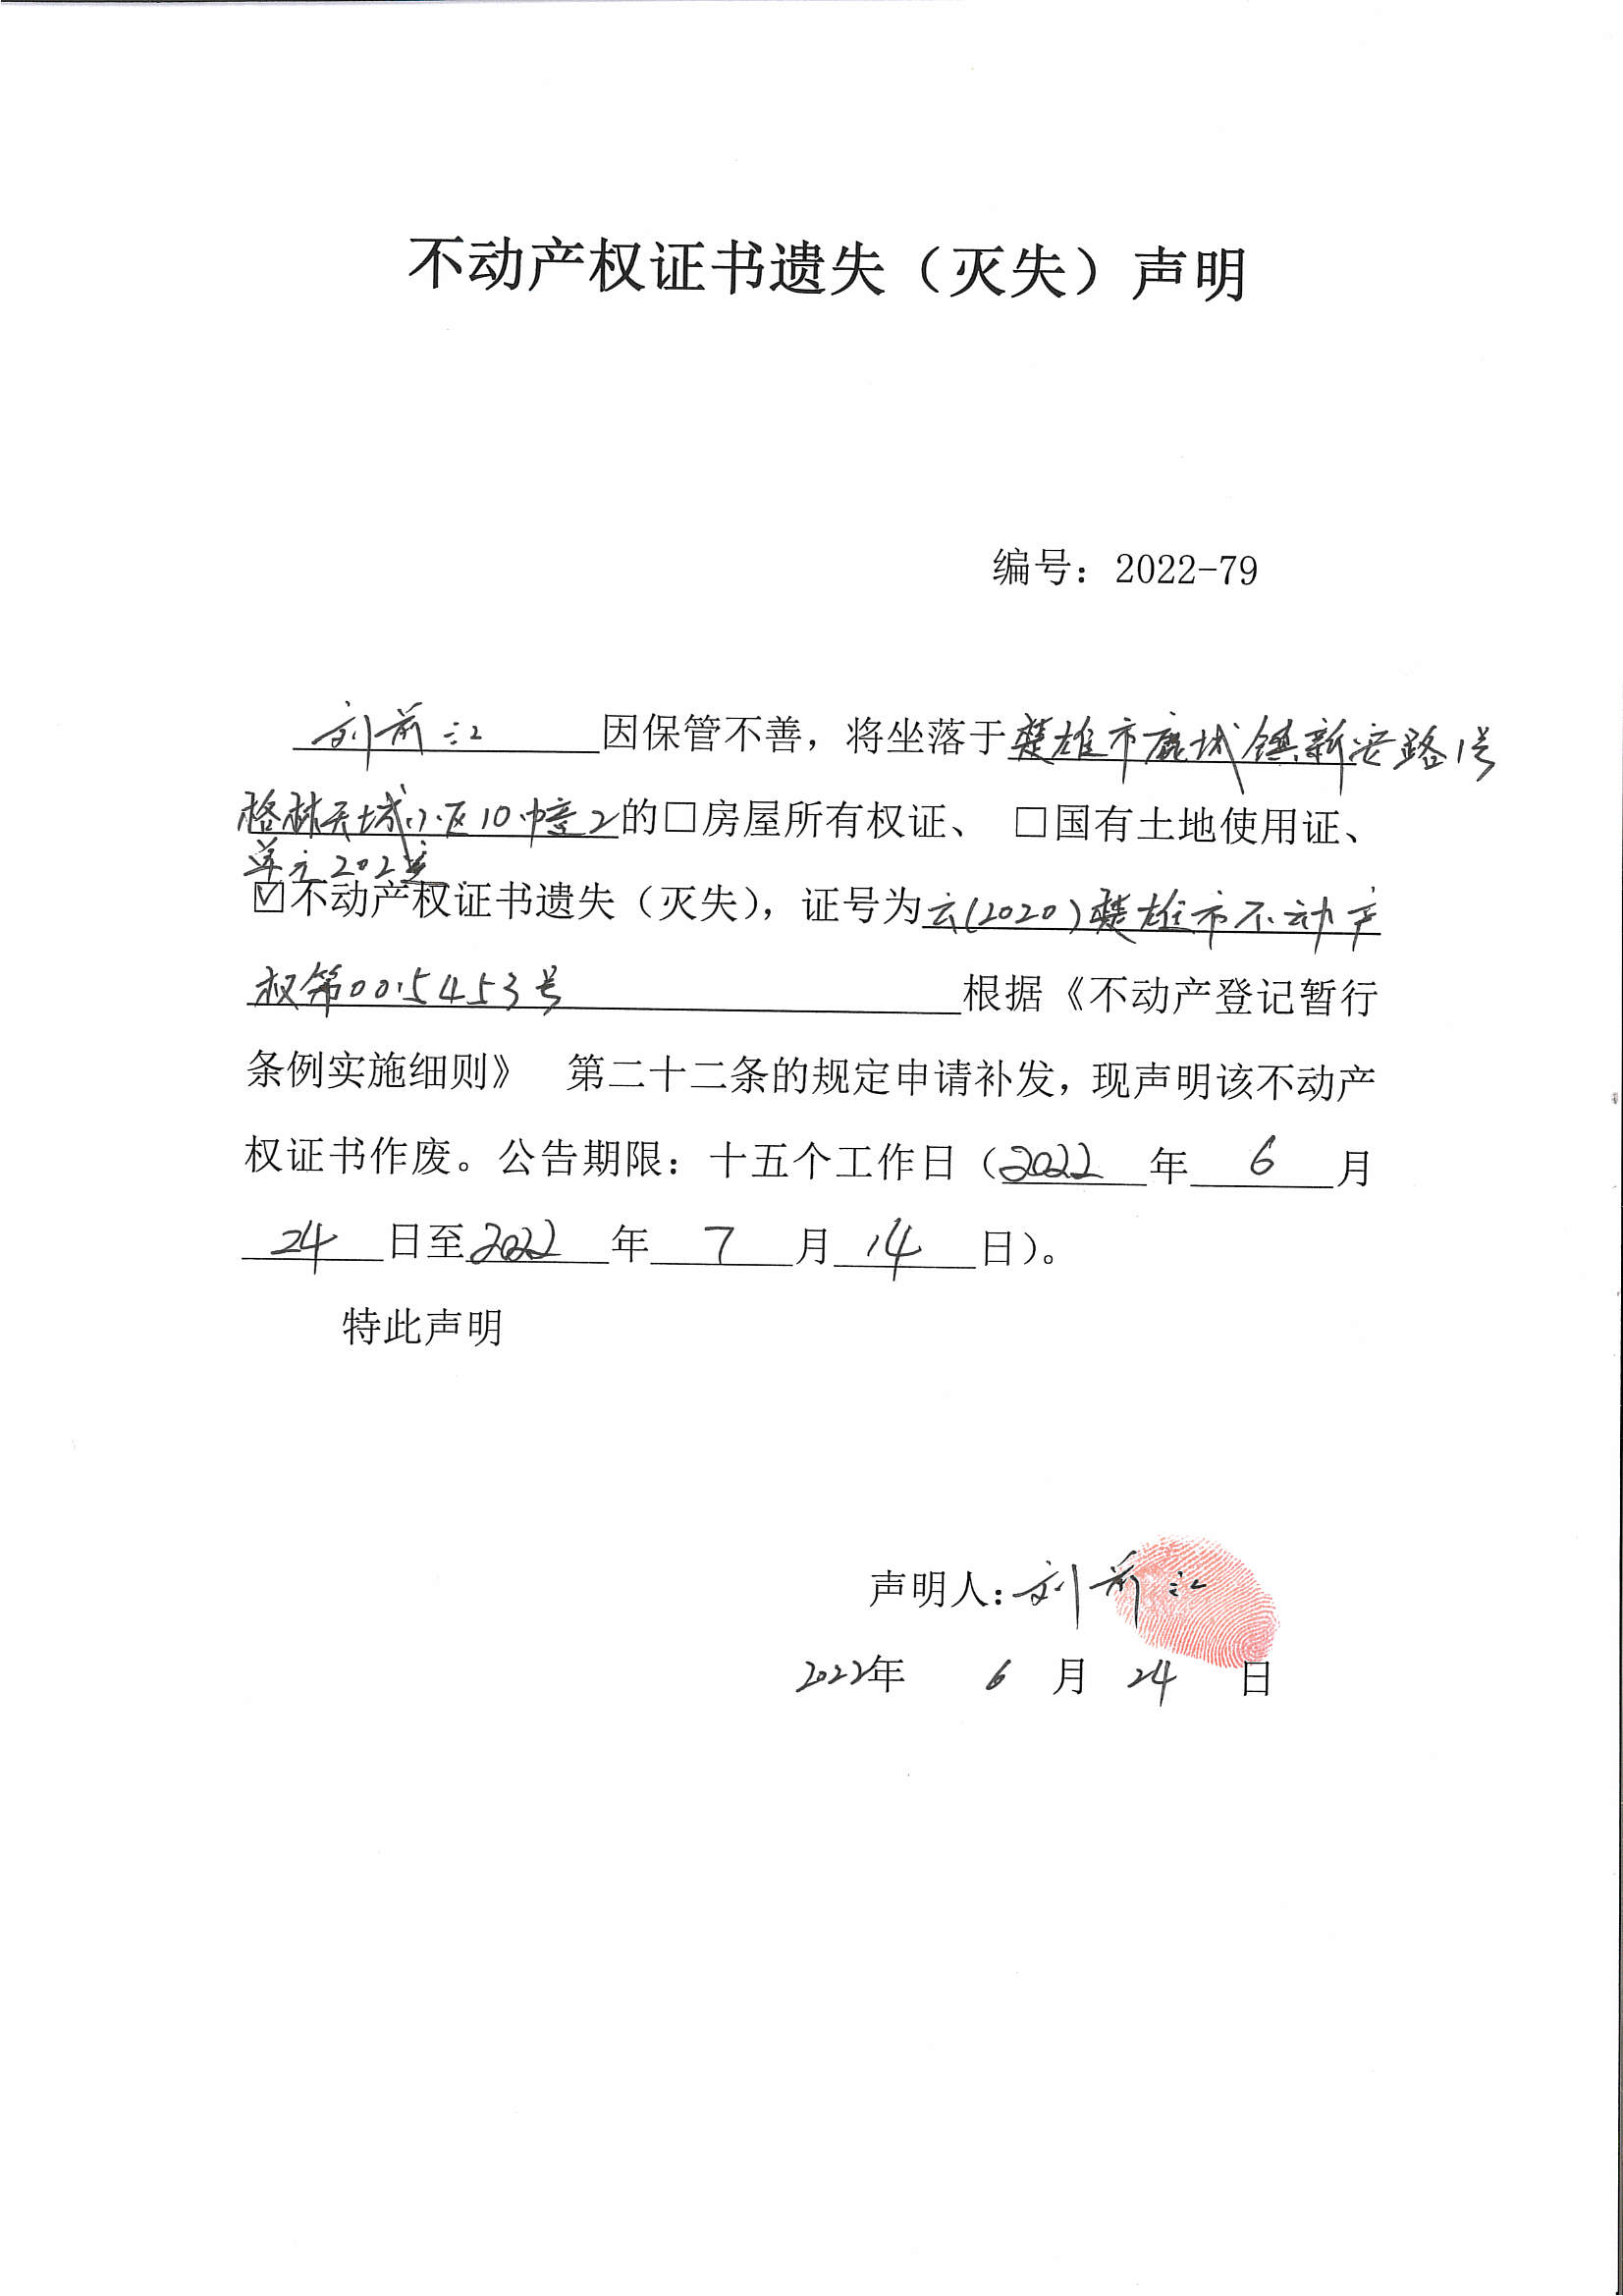 不动产权证书遗失（灭失）声明
编号：2022-79
刘前江因保管不善，将坐落于楚雄市鹿城镇新安路1号
格林天城小区10幢2的□房屋所有权证、 □国有土地使用证、
单元202室
☑不动产权证书遗失（灭失），证号为云(2020)楚雄市不动产
权第0015453号根据《不动产登记暂行
条例实施细则》 第二十二条的规定申请补发，现声明该不动产
权证书作废。公告期限：十五个工作日（2022年6月
24日至2022年7月14日）。
特此声明
声明人：刘前江
2022年 6 月 24 日